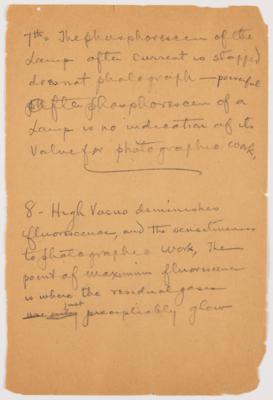 7th. The phosphorescen of the
Lamp after current is stopped
does not photograph — powerful
after phosphorescen of a
Lamp is no indication of its
Value for photographic work,
8 - High Vacuo diminishes
fluorescense, and the sensitiveness
to photographic work, The
point of maximum fluorescense
is where the residual gases
just
preceptibly glow